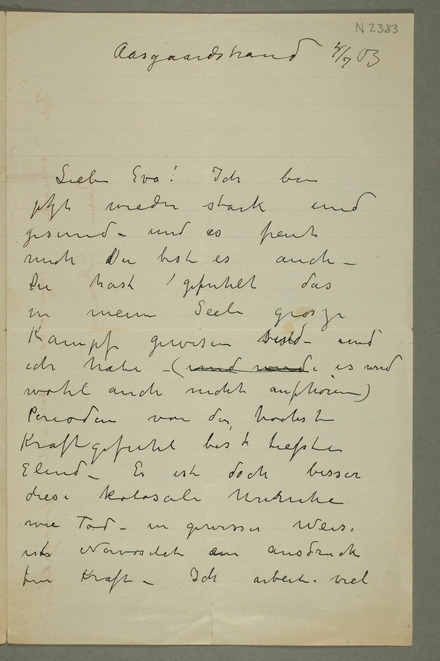 N 2383
Aasgaardstrand 4/7 03
Liebe Eva! Ich bin
jetzt wieder stark und
gesund – und es freut
mich Du bist es auch –
Du hast gefühlt das
in meine Seele grosze
Kampf gewesen sind – und
ich habe – (und werde es wird
wohl auch nicht aufhören)
Perioden von der höchste
Kraftgefühl bis tiefsten
Elend – Es ist doch besser
diese kolosale Unruhe
wie Tod – in gewisser Weise
ist Nervositet ein ausdruck
für Kraft – Ich arbeite viel